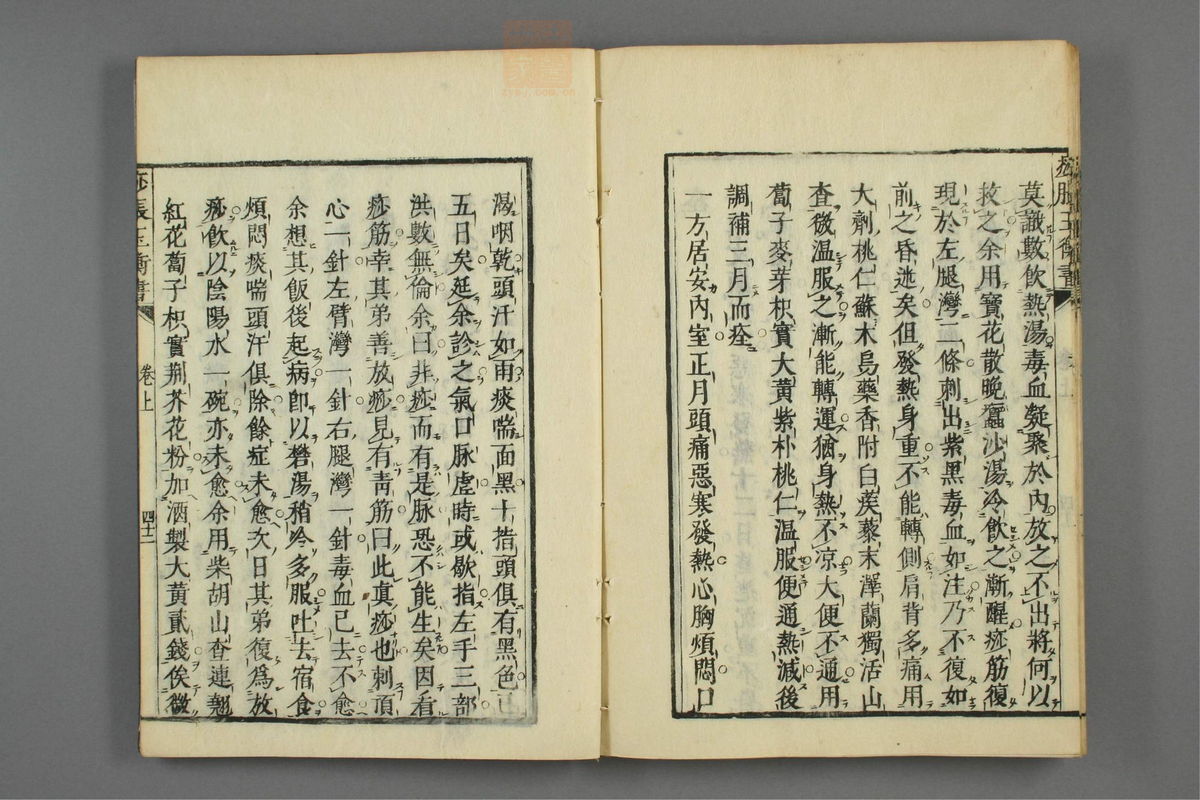 痧脹玉衡書
莫識數飲熱湯毒血凝聚於內放之不出將何以
救之余用寶花散晚蠶沙湯冷飲之漸醒痧筋復
現於左腿灣二條刺出紫黑毒血如注乃不復如
前之昏迷矣但發熱身重不能轉側肩背多痛用
大劑桃仁蘇木烏藥香附白蒺藜末澤蘭獨活山
查微温服之漸能轉運猶身熱不凉大便不通用
蔔子麥芽枳實大黃紫朴桃仁温服便通熱減後
調補三月而痊
一方居安內室正月頭痛惡寒發熱心胸煩悶口
渴咽乾頭汗如雨痰喘面黑十指頭俱有黑色已
五日矣延余診之氣口脉虛時或歇指左手三部
洪數無倫余曰非痧而有是脉恐不能生矣因看
痧筋幸其弟善放痧見有青筋曰此真痧也刺頂
心一針左臂灣一針右腿灣一針毒血已去不愈
余想其飯後起病卽以礬湯稍冷多服吐去宿食
煩悶痰喘頭汗俱除餘症未愈次日其弟復爲放
痧飲以陰陽水一碗亦未愈余用柴胡山查連翹
紅花蔔子枳實荆芥花粉加酒製大黃貳錢俟微
痧脹玉衡書
卷上
四十二